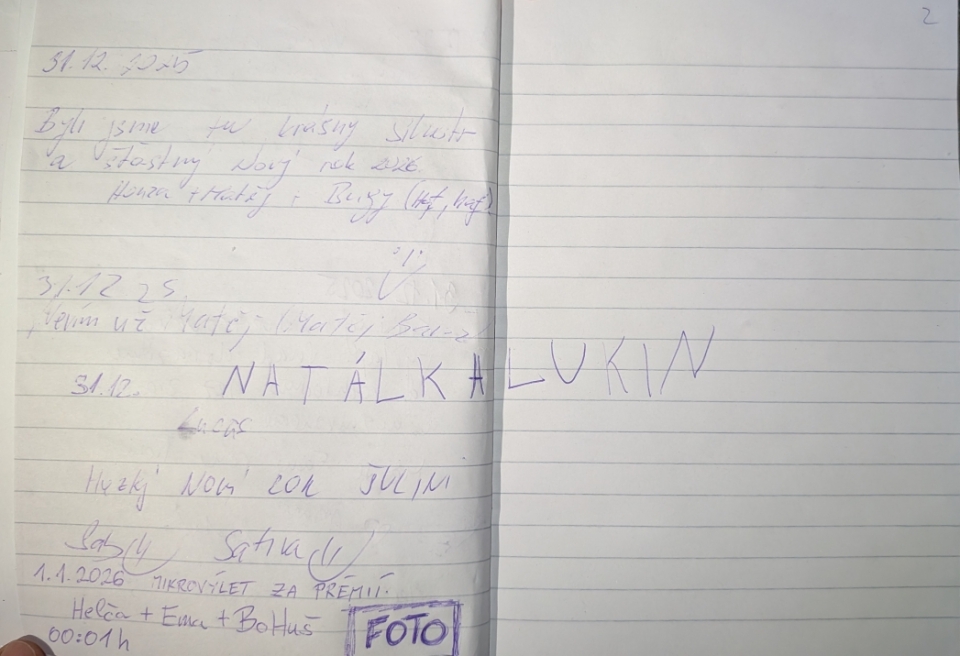 2
31.12. 2025
Byli jsme tu krásný silvestr
a šťastný Nový rok 2026.
Honza + Matěj + Buzy (Haf, haf)
31.12 25
už Matěj (Matěj
NATÁLKA LUKIN
31.12.
Lucas
Hyzkj NOVI ROK
Sativa
1.1.2026 MIKROVÝLET ZA PRÉMIÍ.
Helča + Ema + BoHuš
00:01h
FOTO